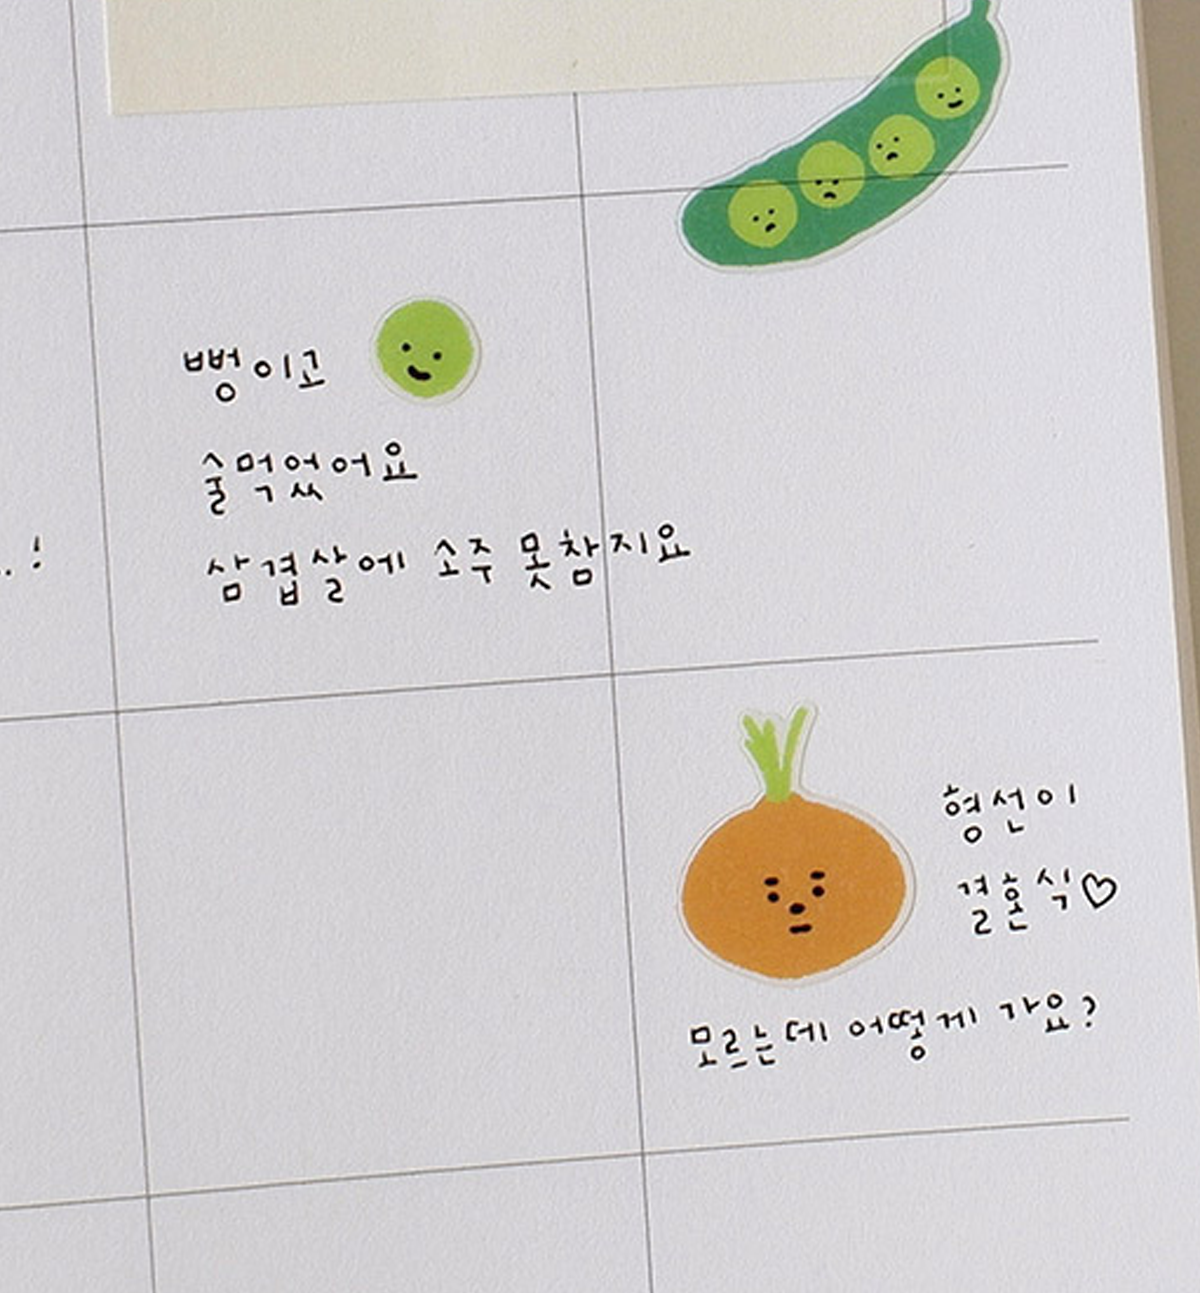 뻥이고
술먹었어요
삼겹살에 소주 못참지요
..!
형선이
결혼식♡
모르는데 어떻게 가요?